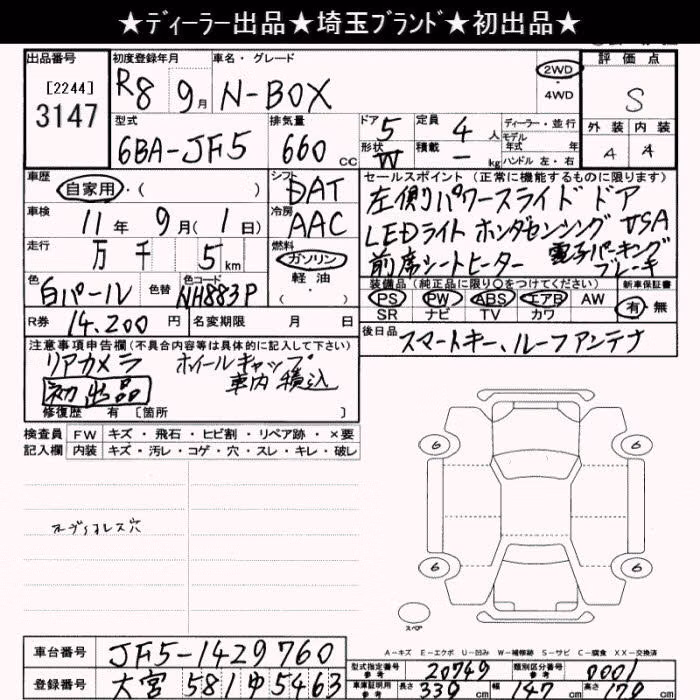 ★ディーラー出品★埼玉ブランド★初出品★
出品番号 初度登録年月 車名・グレード 評価点
[2244] R8 9月 N-BOX 2WD・4WD S
3147 型式 排気量 ドア 定員 ディーラー・並行 外装 内装
6BA-JF5 660CC 5 4人 モデル年式 年 4 4
形状 W 積載 -kg ハンドル 左・右
車歴 シフト セールスポイント(正常に機能するものに限ります)
自家用・( ) DAT 左側パワースライドドア
車検 冷房 LEDライト ホンダセンシング USA
11年 9月(1日) AAC 前席シートヒーター 電子パーキングブレーキ
走行 燃料
万 千 5km ガソリン・軽油( )
色 色替 色コード 装備品(純正品に限り○をつけてください) 新車保証書
白パール NH883P PS PW ABS エアB AW 有・無
SR ナビ TV カワ
R券 14,200円 名変期限 月 日 後日品
スマートキー、ルーフアンテナ
注意事項申告欄(不具合内容等は具体的に記入して下さい)
リアカメラ ホイールキャップ
初出品 車内積込
修復歴 有 [箇所 ]
検査員 FW キズ・飛石・ヒビ割・リペア跡・×要
記入欄 内装 キズ・汚レ・コゲ・穴・スレ・キレ・破レ
6 6
6 6
スペア
A-キズ E-エクボ U-凹み W-補修跡 S-サビ C-腐食 XX-交換済
車台番号 JF5-1429760
型式指定番号参考 20749 類別区分番号参考 0001
登録番号 大宮 581 ゆ 5463
車庫証明用参考 長さ 339cm 幅 147cm 高さ 179cm